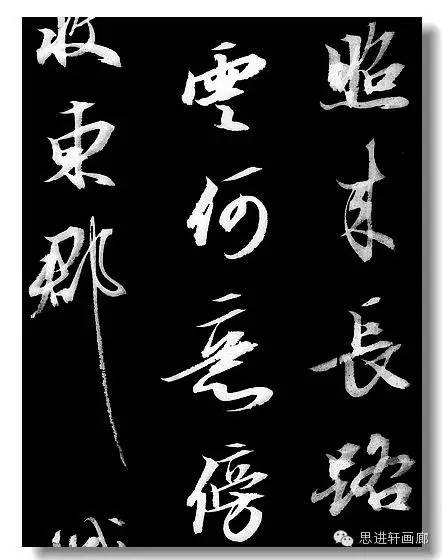 照来長路
雲何意傍
收東郡
思进轩画廊